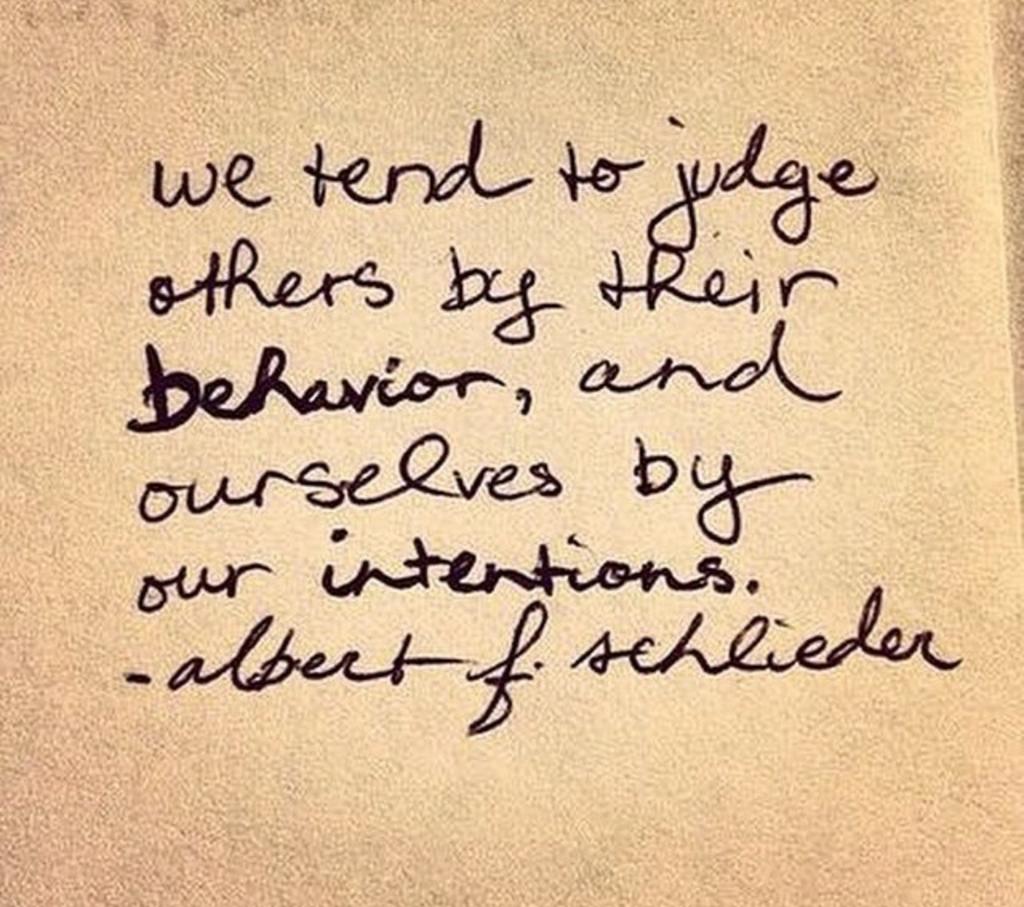 we tend to judge
others by their
behavior, and
ourselves by
our intentions.
-albert f. schlieder